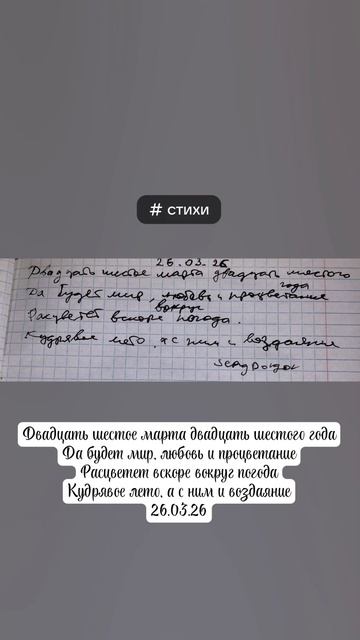 # стихи
26.03.26
Двадцать шестое марта двадцать шестого
года
Да будет мир, любовь и процветание
вокруг
Расцветет вскоре погода.
Кудрявое лето, а с ним и воздаяние
Двадцать шестое марта двадцать шестого года
Да будет мир, любовь и процветание
Расцветет вскоре вокруг погода
Кудрявое лето, а с ним и воздаяние
26.03.26